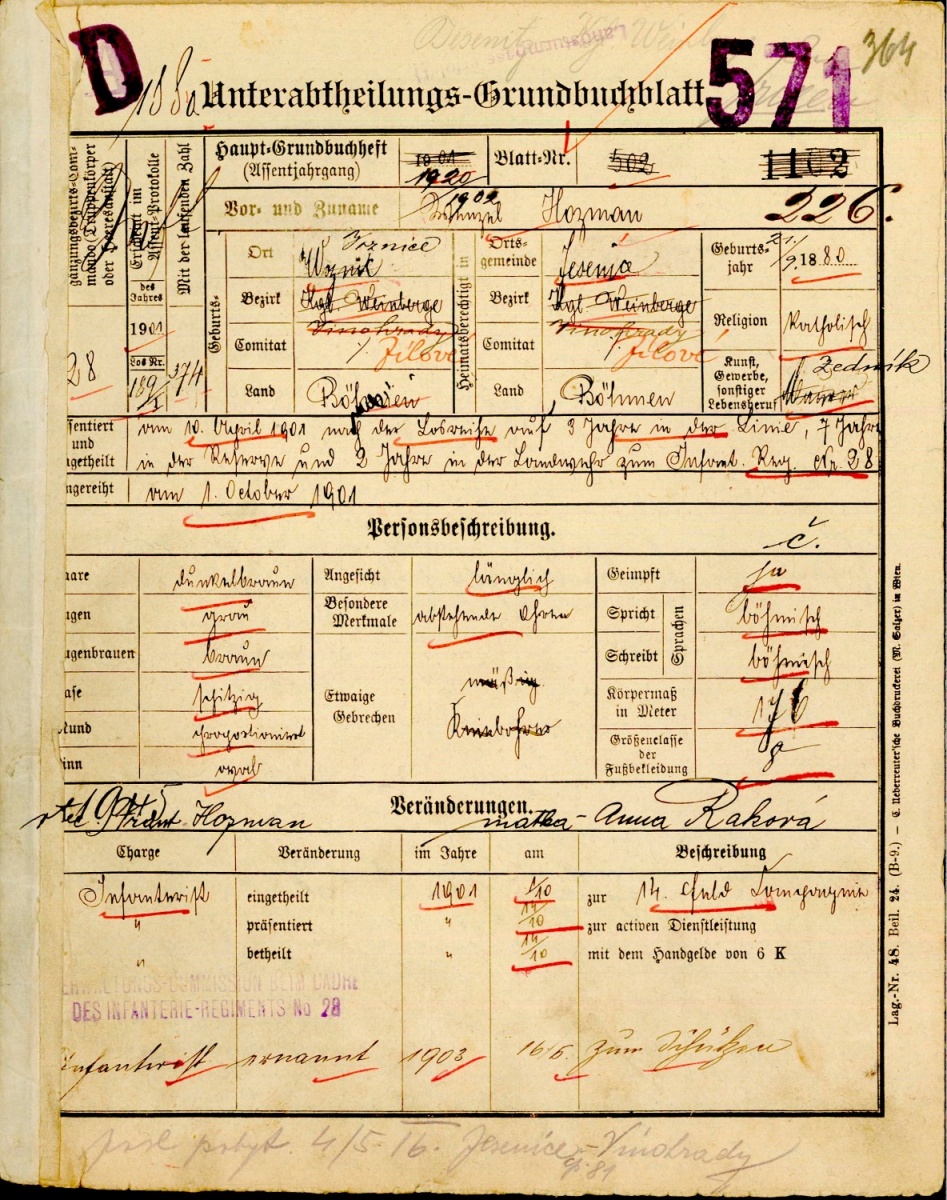 D 1880 Unterabtheilungs-Grundbuchblatt 571 364
Haupt-Grundbuchheft (Assentjahrgang) 1901 1920 Blatt-Nr. 502 1102
Vor- und Zuname Wenzel Hozman 226.
gänzungsbezirks-Com-
mando (Truppenkörper
oder Heeresanstalt)
28
Erscheint im
Assent-Protokolle
des
Jahres
1901
Los Nr.
189/I
Mit der laufenden Zahl
374
Geburts-
Ort Woznic Voznice
Bezirk Kgl. Weinberge
Vinohrady
Comitat ./. Jílové
Land Böhmen
Heimatsberechtigt in
Orts-
gemeinde Jesenic
Bezirk Kgl. Weinberge
Vinohrady
Comitat ./. Jílové
Land Böhmen
Geburts-
jahr 21/9. 1880
Religion katholisch
Kunst,
Gewerbe,
sonstiger
Lebensberuf Zedník Maurer
sentiert
und
getheilt
am 10. April 1901 nach der Losreihe auf 3 Jahre in der Linie, 7 Jahre
in der Reserve und 2 Jahre in der Landwehr zum Infant. Reg. Nr. 28
ngereiht am 1. October 1901
Personsbeschreibung.
č.
aare dunkelbraun
ugen grau
ugenbrauen braun
ase spitzig
Mund proportionirt
inn oval
Angesicht länglich
Besondere
Merkmale abstehende Ohren
Etwaige
Gebrechen mäßig
Geimpft ja
Sprachen
Spricht böhmisch
Schreibt böhmisch
Körpermaß
in Meter 176
Größenclasse
der
Fußbekleidung 8
Veränderungen.
otec Frant. Hozman matka - Anna Raková
Charge Veränderung im Jahre am Beschreibung
Infanterist eingetheilt 1901 1/10 zur 14. Feld Compagnie
" präsentiert " 14/10 zur activen Dienstleistung
" betheilt " 14/10 mit dem Handgelde von 6 K
ERWALTUNGS-COMMISSION BEIM CADRE
DES INFANTERIE-REGIMENTS No 28
Infanterist ernannt 1903 16/6. zum Schützen
posl. pobyt. 4/5-16. Jesenice - Vinohrady
čp. 81
Lag.-Nr. 48. Beil. 24. (B-9.) — C. Ueberreuter'sche Buchdruckerei (M. Salzer) in Wien.